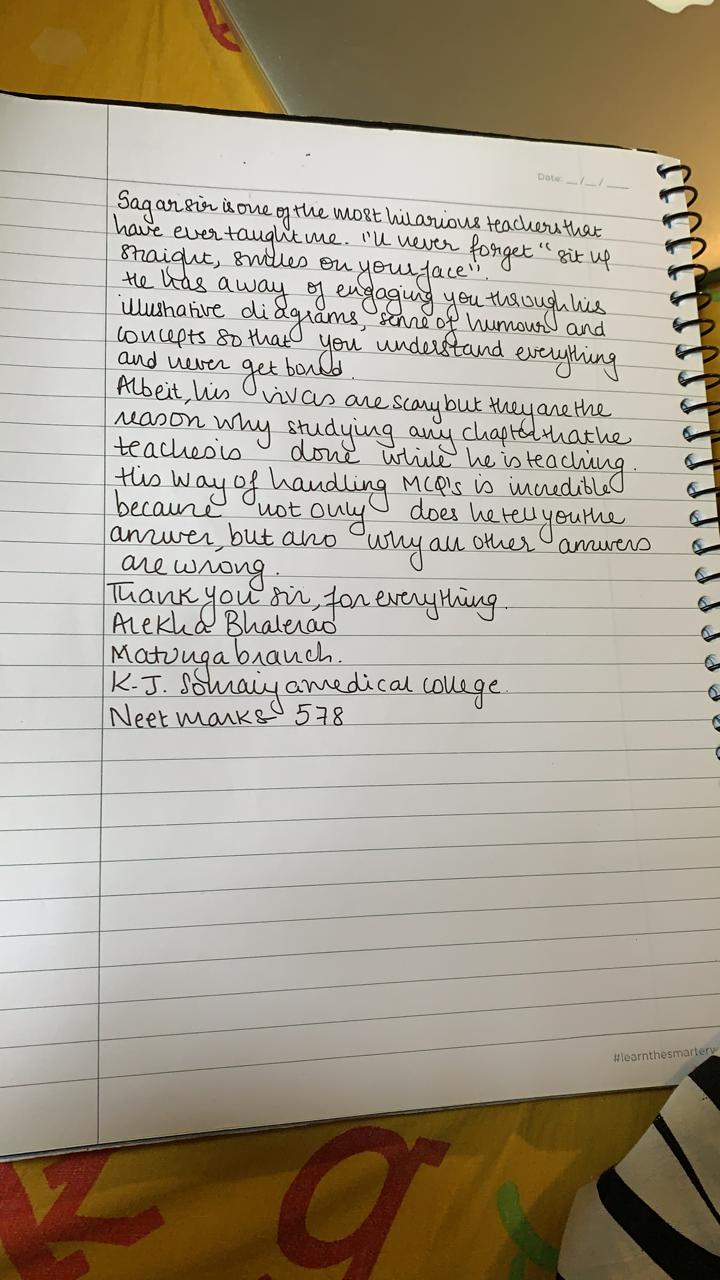 Date: __/__/____
Sagar sir is one of the most hilarious teachers that
have ever taught me. I'll never forget "sit up
straight, smiles on your face".
He has a way of engaging you through his
illustrative diagrams, sense of humour and
concepts so that you understand everything
and never get bored.
Albeit, his vivas are scary but they are the
reason why studying any chapter that he
teaches is done while he is teaching.
His way of handling MCQ's is incredible
because not only does he tell you the
answer, but also why all other answers
are wrong.
Thank you sir, for everything.
Alekha Bhalerao
Matunga branch.
K.J. Somaiya medical college.
Neet marks 578
#learnthesmarterw